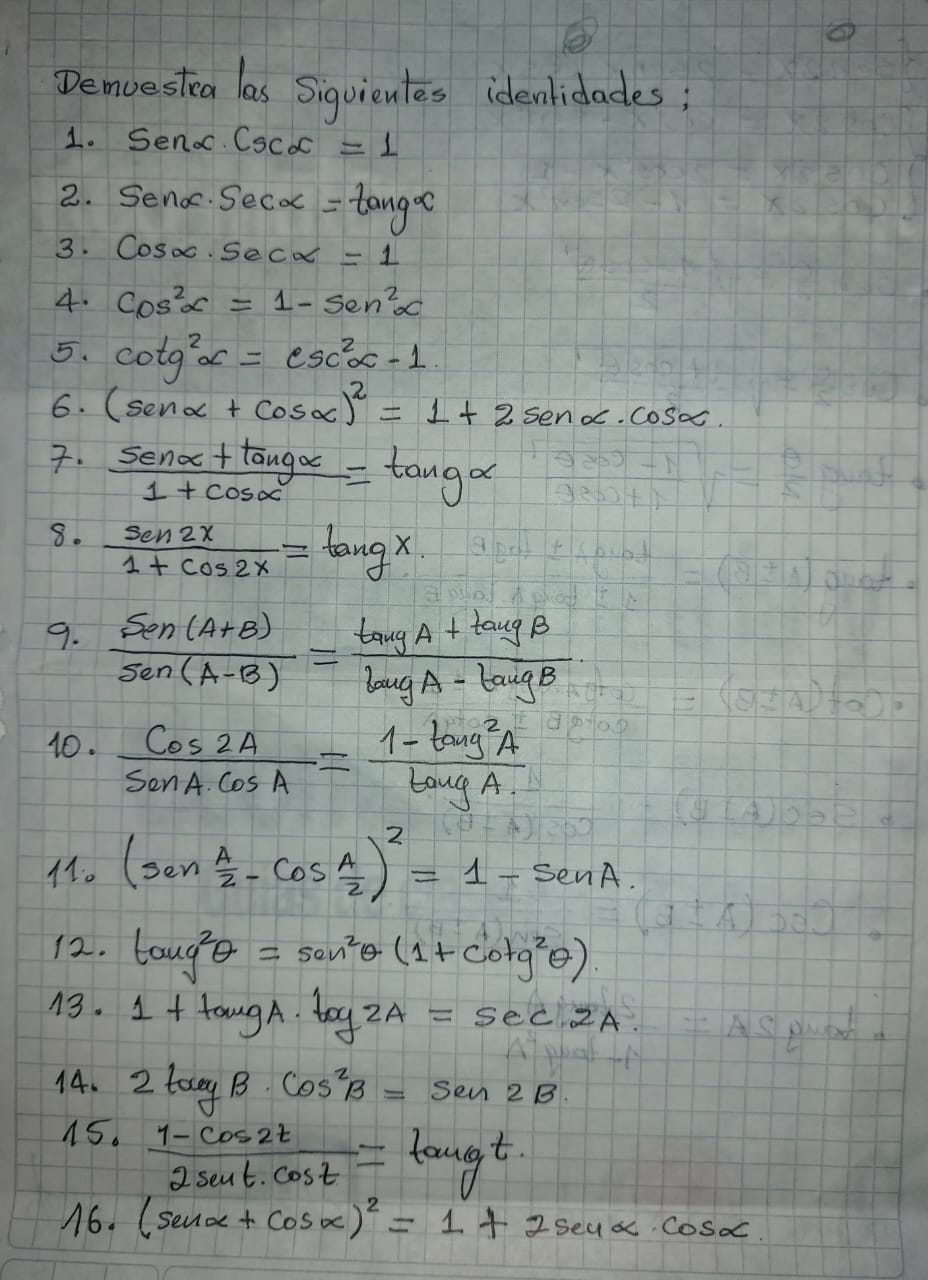 Demuestra las Siguientes identidades;
1. Senα.Cscα = 1
2. Senα.Secα = tangα
3. Cosα.Secα = 1
4. Cos²α = 1-sen²α
5. cotg²α = csc²α-1.
6. (senα + cosα)² = 1 + 2senα.cosα.
7. (senα + tangα)/(1 + cosα) = tangα
8. sen2x/(1 + cos2x) = tangx.
9. Sen(A+B)/sen(A-B) = (tangA + tangB)/(tangA - tangB).
10. Cos2A/(SenA.CosA) = (1-tang²A)/(tangA.)
11. (sen A/2 - cos A/2)² = 1 - senA.
12. tang²θ = sen²θ(1+cotg²θ).
13. 1 + tangA.tog2A = sec.2A.
14. 2tangB.Cos²B = sen2B.
15. (1-cos2t)/(2sent.cost) = tangt.
16. (senα + cosα)² = 1 + 2senα.cosα.